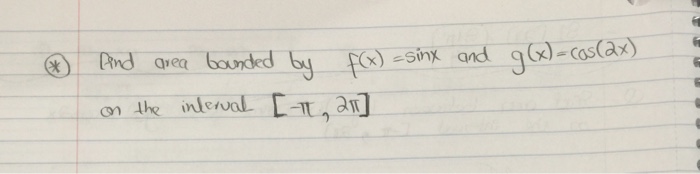 * Find area bounded by f(x) = sinx and g(x) = cos(2x)
on the interval [-π, 2π]